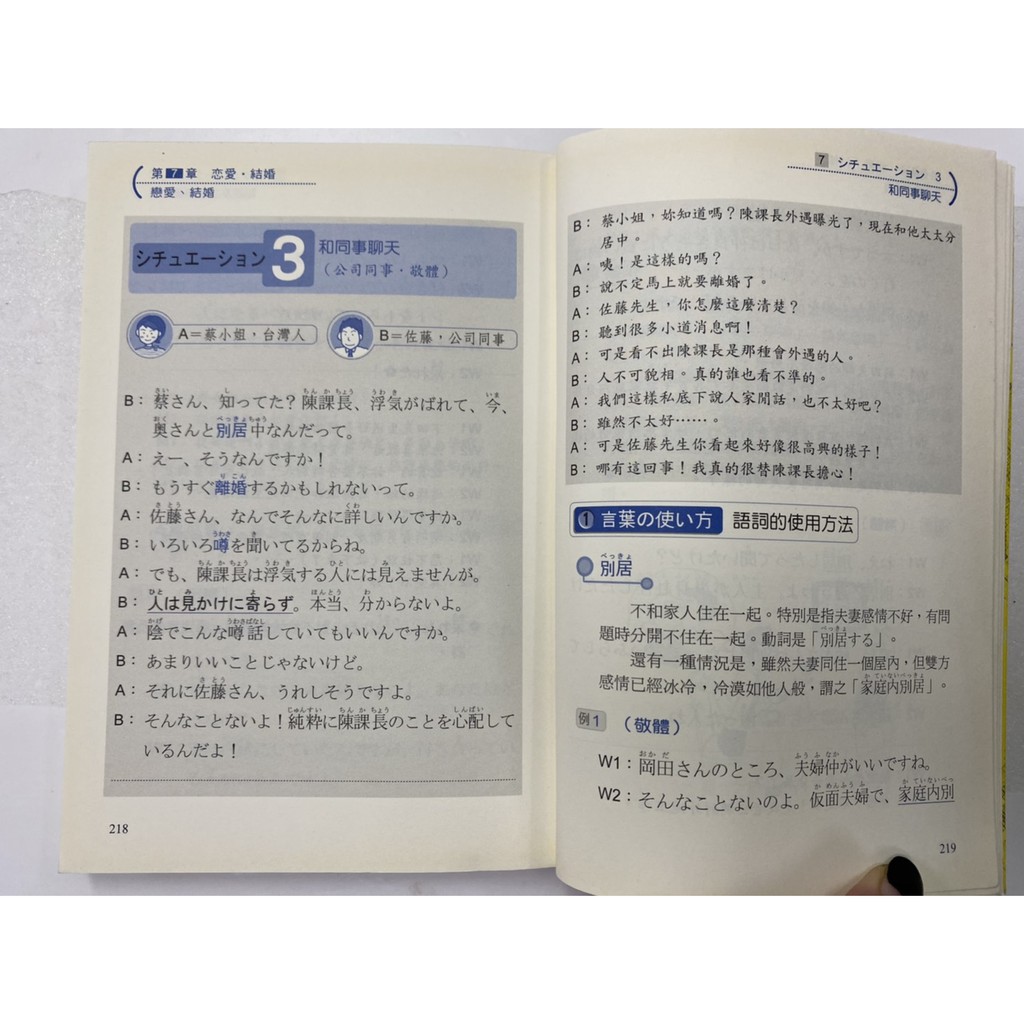 第7章 恋愛・結婚
戀愛、結婚
シチュエーション 3 和同事聊天
(公司同事・敬體)
A=蔡小姐，台灣人 B=佐藤，公司同事
B：蔡さん、知ってた？陳課長、浮気がばれて、今、
奥さんと別居中なんだって。
A：えー、そうなんですか！
B：もうすぐ離婚するかもしれないって。
A：佐藤さん、なんでそんなに詳しいんですか。
B：いろいろ噂を聞いてるからね。
A：でも、陳課長は浮気する人には見えませんが。
B：人は見かけに寄らず。本当、分からないよ。
A：陰でこんな噂話していてもいいんですか。
B：あまりいいことじゃないけど。
A：それに佐藤さん、うれしそうですよ。
B：そんなことないよ！純粋に陳課長のことを心配して
いるんだよ！
218
7 シチュエーション 3
和同事聊天
B：蔡小姐，妳知道嗎？陳課長外遇曝光了，現在和他太太分
居中。
A：咦！是這樣的嗎？
B：說不定馬上就要離婚了。
A：佐藤先生，你怎麼這麼清楚？
B：聽到很多小道消息啊！
A：可是看不出陳課長是那種會外遇的人。
B：人不可貌相。真的誰也看不準的。
A：我們這樣私底下說人家閒話，也不太好吧？
B：雖然不太好……。
A：可是佐藤先生你看起來好像很高興的樣子！
B：哪有這回事！我真的很替陳課長擔心！
1 言葉の使い方 語詞的使用方法
べっきょ
別居
不和家人住在一起。特別是指夫妻感情不好，有問
題時分開不住在一起。動詞是「別居する」。
還有一種情況是，雖然夫妻同住一個屋內，但雙方
感情已經冰冷，冷漠如他人般，謂之「家庭内別居」。
例1 （敬體）
W1：岡田さんのところ、夫婦仲がいいですね。
W2：そんなことないのよ。仮面夫婦で、家庭内別
219